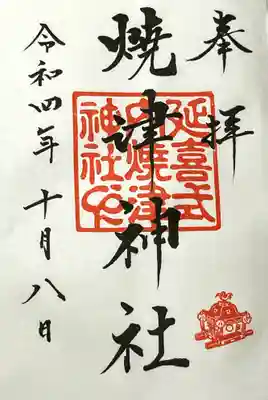 奉拝
延喜式
内燒津
神社印
燒津神社
令和四年十月八日